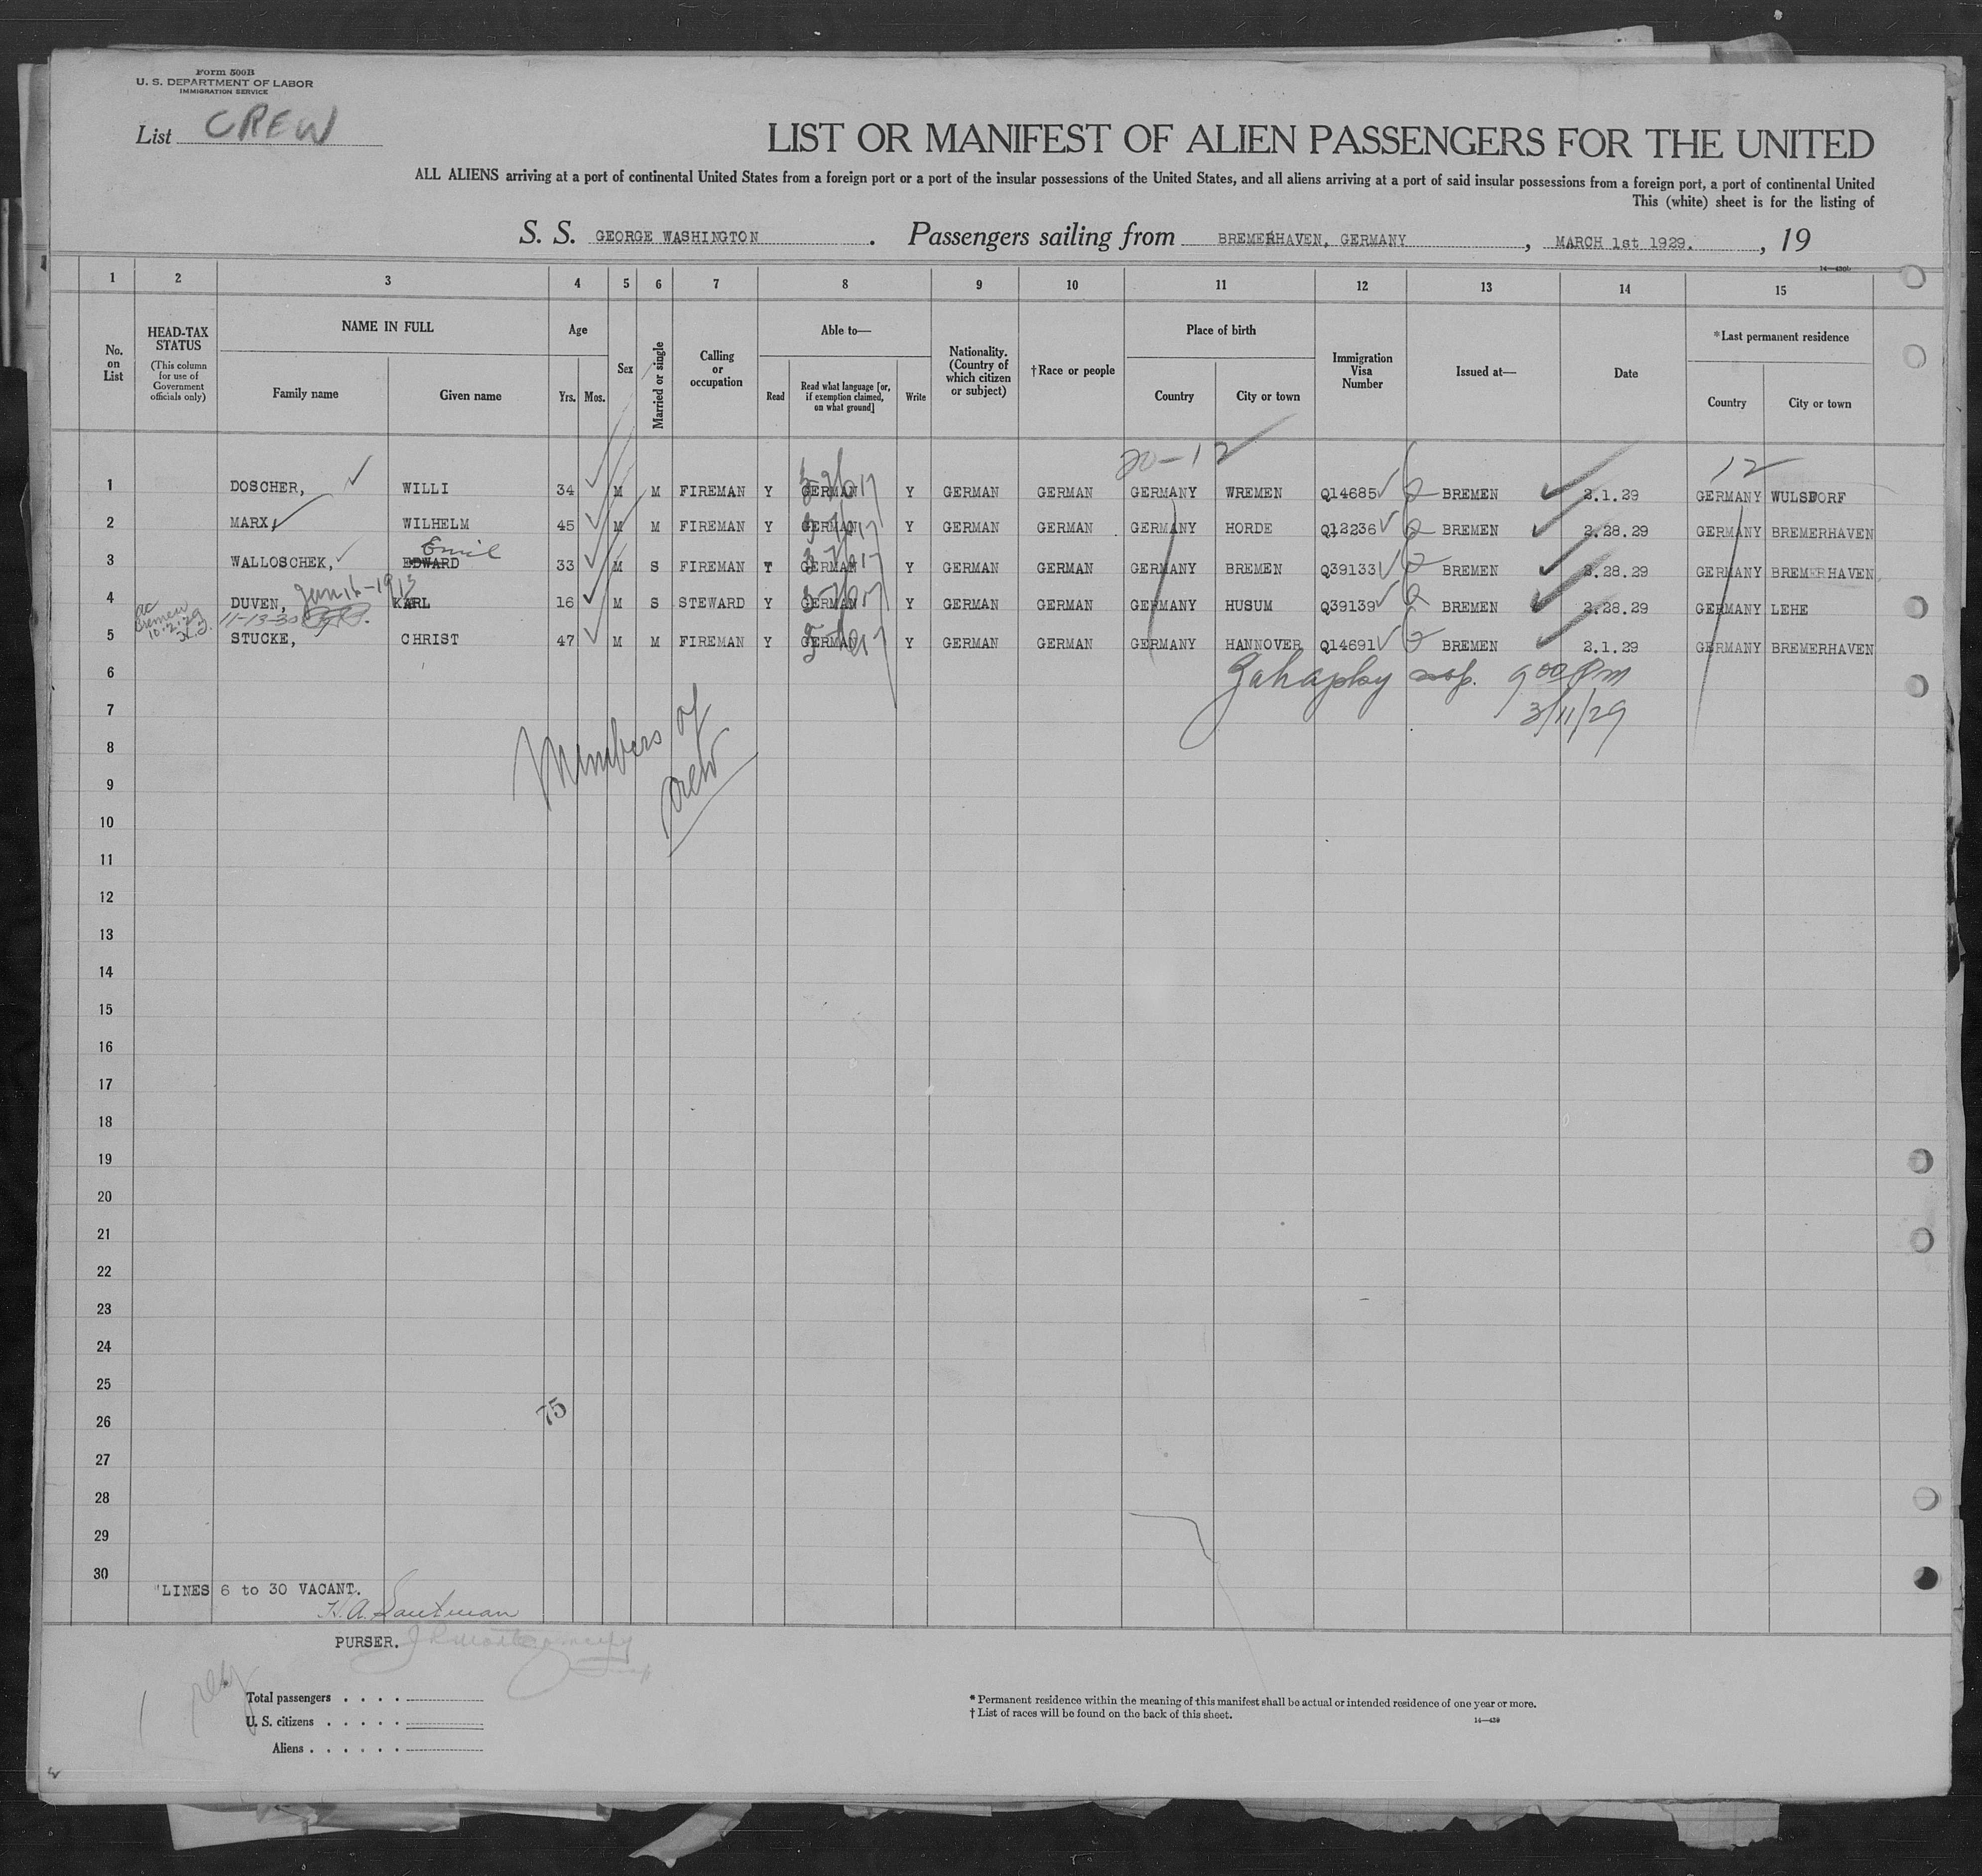 Form 500B
U. S. DEPARTMENT OF LABOR
IMMIGRATION SERVICE
List CREW
LIST OR MANIFEST OF ALIEN PASSENGERS FOR THE UNITED
ALL ALIENS arriving at a port of continental United States from a foreign port or a port of the insular possessions of the United States, and all aliens arriving at a port of said insular possessions from a foreign port, a port of continental United
This (white) sheet is for the listing of
S. S. GEORGE WASHINGTON . Passengers sailing from BREMERHAVEN, GERMANY , MARCH 1st 1929. , 19
14—436b
1 2 3 4 5 6 7 8 9 10 11 12 13 14 15
No. on List
HEAD-TAX STATUS
(This column for use of Government officials only)
NAME IN FULL
Family name
Given name
Age
Yrs. Mos.
Sex
Married or single
Calling or occupation
Able to—
Read
Read what language [or, if exemption claimed, on what ground]
Write
Nationality. (Country of which citizen or subject)
†Race or people
Place of birth
Country
City or town
Immigration Visa Number
Issued at—
Date
*Last permanent residence
Country
City or town
20-12 12
1 DOSCHER, WILLI 34 M M FIREMAN Y GERMAN Y GERMAN GERMAN GERMANY WREMEN Q14685 BREMEN 2.1.29 GERMANY WULSDORF
2 MARX, WILHELM 45 M M FIREMAN Y GERMAN Y GERMAN GERMAN GERMANY HORDE Q12236 BREMEN 2.28.29 GERMANY BREMERHAVEN
Emil
3 WALLOSCHEK, EDWARD 33 M S FIREMAN Y GERMAN Y GERMAN GERMAN GERMANY BREMEN Q39133 BREMEN 2.28.29 GERMANY BREMERHAVEN
4 DUVEN, KARL 16 M S STEWARD Y GERMAN Y GERMAN GERMAN GERMANY HUSUM Q39139 BREMEN 2.28.29 GERMANY LEHE
11-13-30
5 STUCKE, CHRIST 47 M M FIREMAN Y GERMAN Y GERMAN GERMAN GERMANY HANNOVER Q14691 BREMEN 2.1.29 GERMANY BREMERHAVEN
6
9 00 Pm
7
3/11/29
Members of
crew
8
9
10
11
12
13
14
15
16
17
18
19
20
21
22
23
24
25
26
75
27
28
29
30
"LINES 6 to 30 VACANT.
PURSER.
Total passengers
U. S. citizens
Aliens
* Permanent residence within the meaning of this manifest shall be actual or intended residence of one year or more.
† List of races will be found on the back of this sheet.
14—439